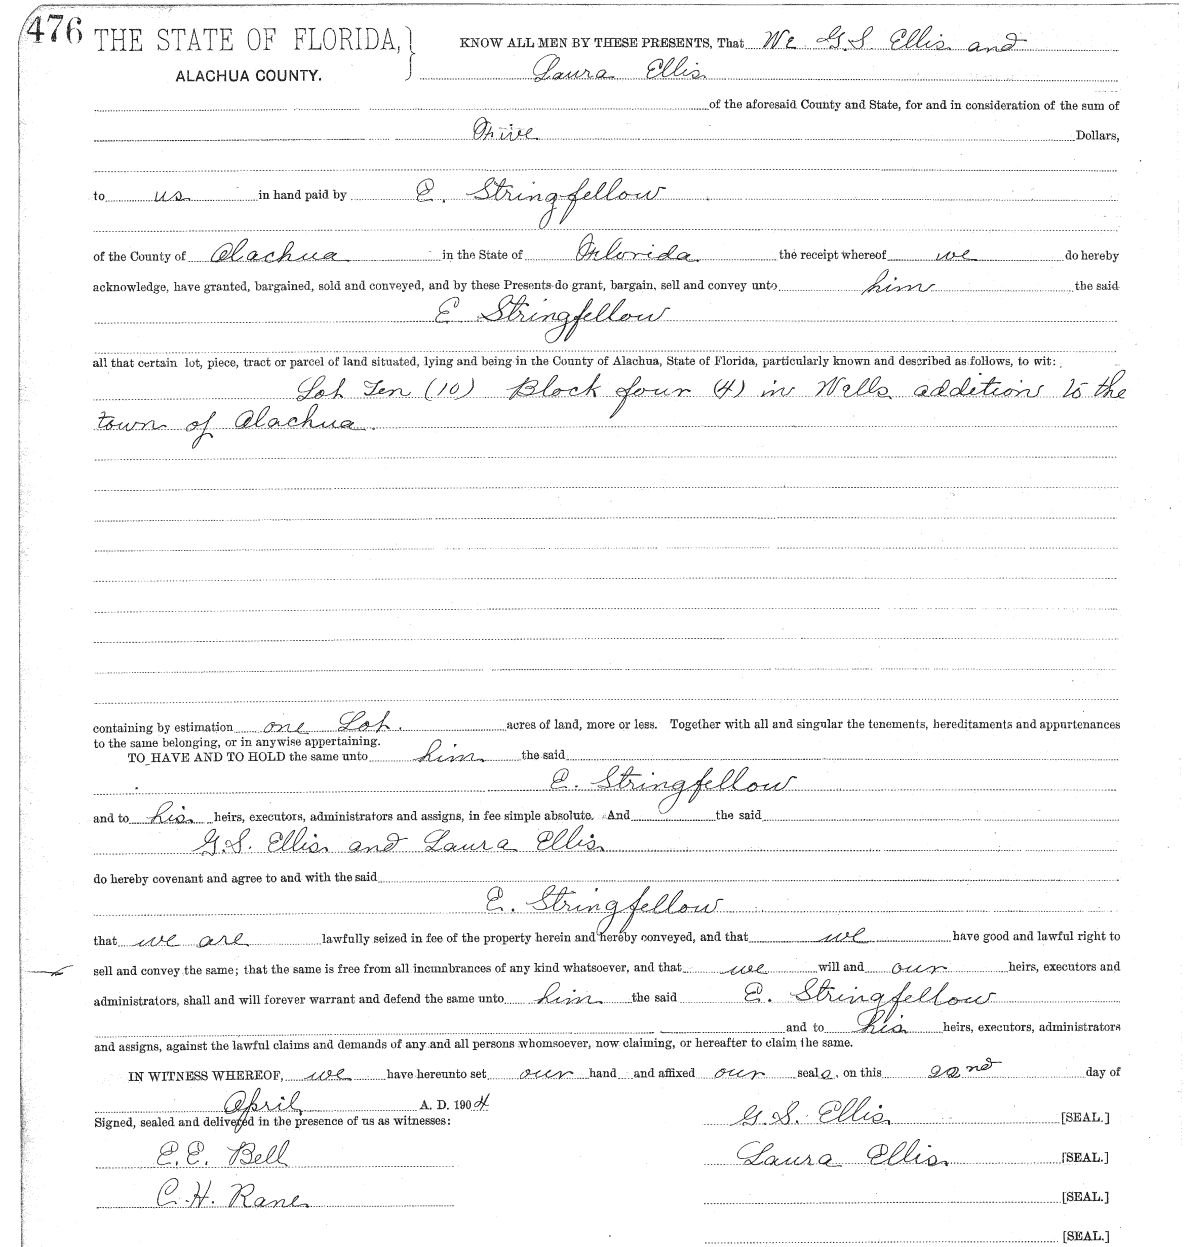 476 THE STATE OF FLORIDA, KNOW ALL MEN BY THESE PRESENTS, That We G.S. Ellis and
ALACHUA COUNTY. Laura Ellis
of the aforesaid County and State, for and in consideration of the sum of
Five Dollars,
to us in hand paid by E. Stringfellow
of the County of Alachua in the State of Florida the receipt whereof we do hereby
acknowledge, have granted, bargained, sold and conveyed, and by these Presents do grant, bargain, sell and convey unto him the said
E Stringfellow
all that certain lot, piece, tract or parcel of land situated, lying and being in the County of Alachua, State of Florida, particularly known and described as follows, to wit:
Lot Ten (10) Block four (4) in Wells addition to the
town of Alachua.
containing by estimation one Lot. acres of land, more or less. Together with all and singular the tenements, hereditaments and appurtenances
to the same belonging, or in anywise appertaining.
TO HAVE AND TO HOLD the same unto him the said
E. Stringfellow
and to his heirs, executors, administrators and assigns, in fee simple absolute. And the said
G.S. Ellis and Laura Ellis
do hereby covenant and agree to and with the said
E. Stringfellow
that we are lawfully seized in fee of the property herein and hereby conveyed, and that we have good and lawful right to
sell and convey the same; that the same is free from all incumbrances of any kind whatsoever, and that we will and our heirs, executors and
administrators, shall and will forever warrant and defend the same unto him the said E. Stringfellow
and to his heirs, executors, administrators
and assigns, against the lawful claims and demands of any and all persons whomsoever, now claiming, or hereafter to claim the same.
IN WITNESS WHEREOF, we have hereunto set our hand and affixed our seals, on this 22nd day of
April A. D. 1904
Signed, sealed and delivered in the presence of us as witnesses: G.S. Ellis [SEAL.]
E.E. Bell Laura Ellis [SEAL.]
C.H. Rane [SEAL.]
[SEAL.]